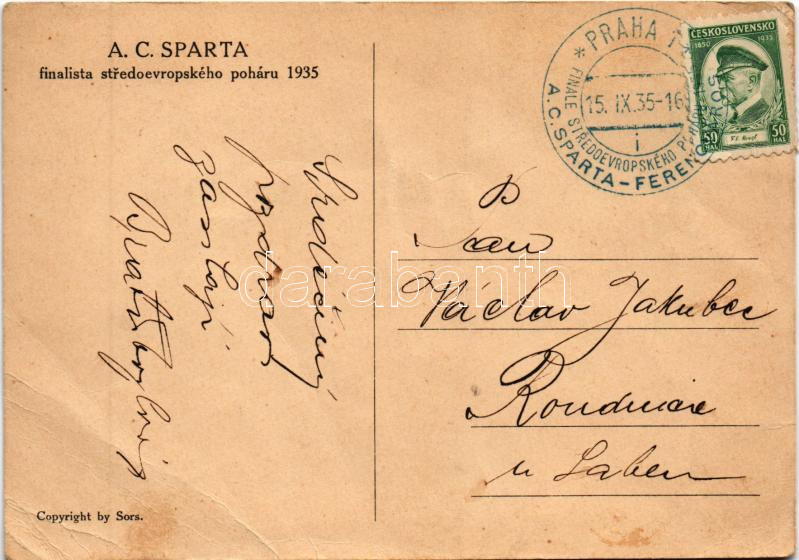 A. C. SPARTA
finalista středoevropského poháru 1935
Srdečný
pozdrav
zasílají
Copyright by Sors.
* PRAHA
FINALE STŘEDOEVROPSKÉHO POHÁRU
15. IX. 35-16
i
A. C. SPARTA - FERENC
ROS
ČESKOSLOVENSKO
1850 1935
50 50
HAL HAL
P.
Pan
Václav Jakubec
Roudnice
u Laben
darabanth